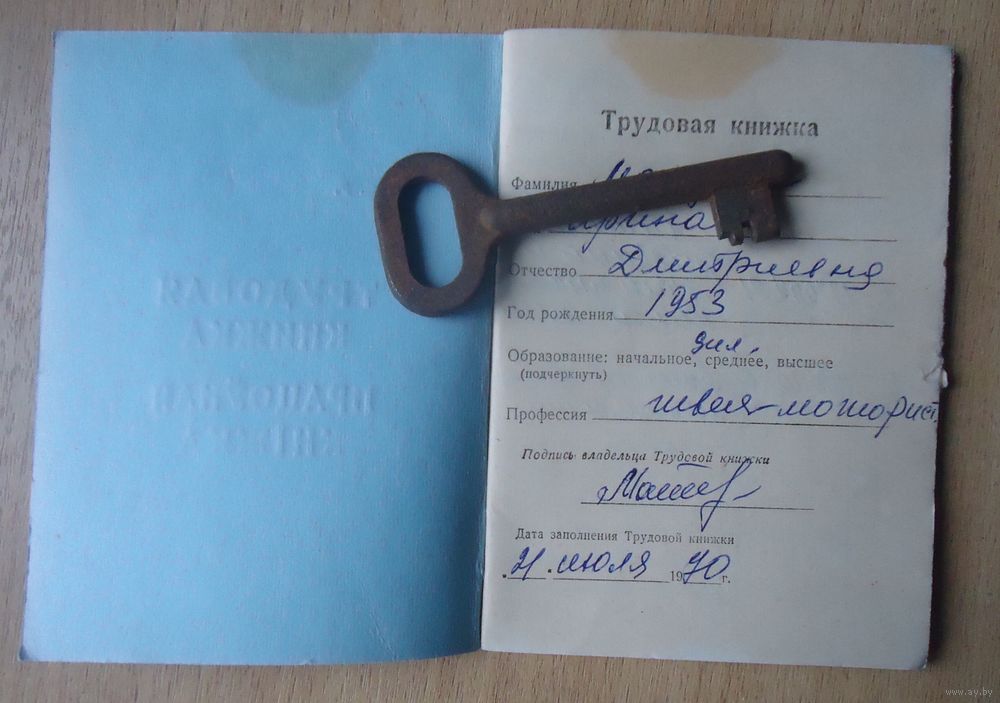 Трудовая книжка
Фамилия
Отчество Дмитриевна
Год рождения 1953
Образование: начальное, среднее, высшее
(подчеркнуть)
Профессия швея-моторист.
Подпись владельца Трудовой книжки
Дата заполнения Трудовой книжки
21 июля 1970 г.
www.ay.by